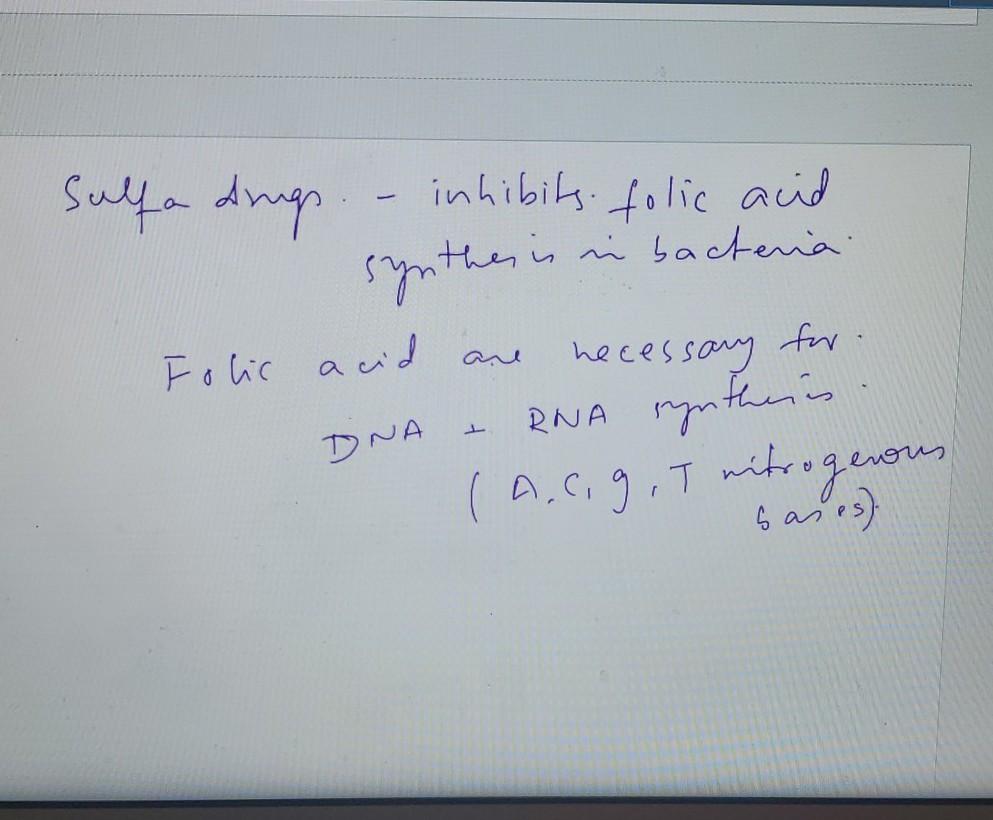 Sulfa drugs. - inhibits. folic acid
synthesis in bacteria.
Folic acid are necessary for.
DNA + RNA synthesis.
( A, C, g, T nitrogenous
bases).